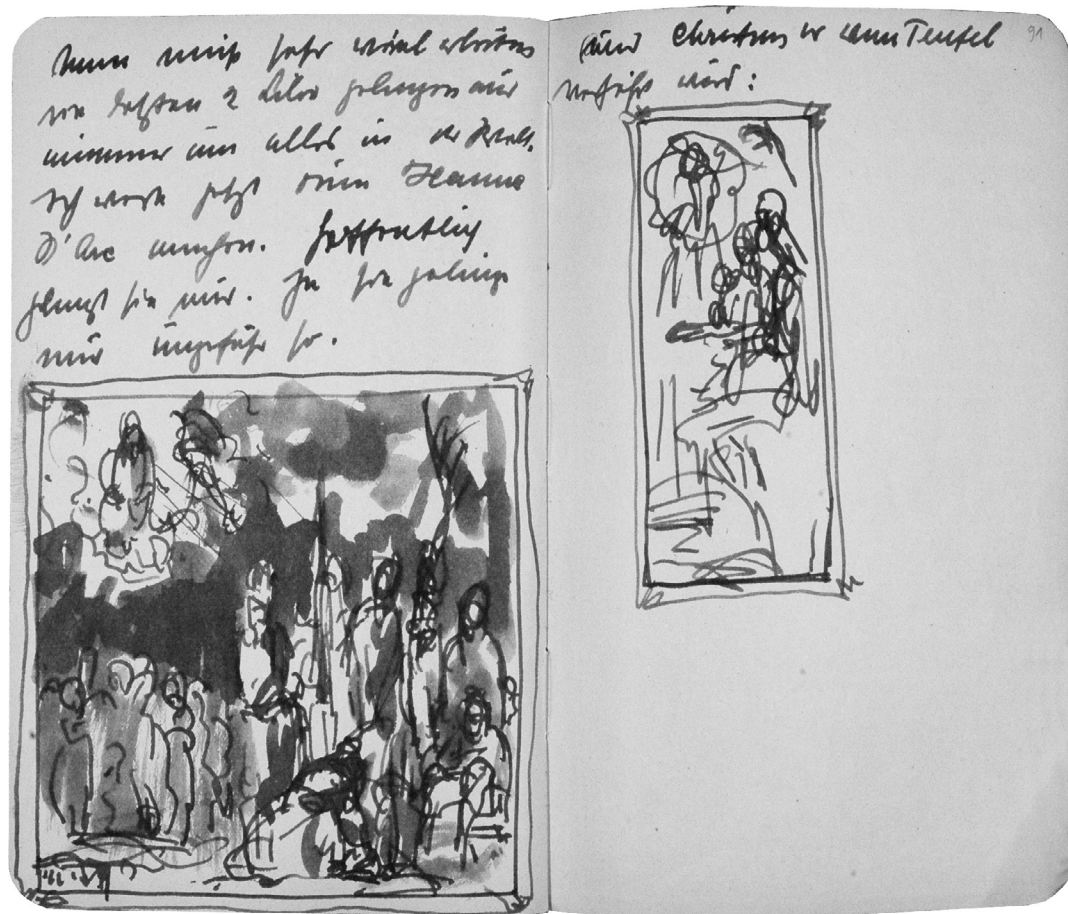 muß sehr viel arbeiten
die letzten 2 Bilder gelingen mir
nimmer um alles in der Welt.
Ich werde jetzt eine Jeanne
D'Arc machen. Hoffentlich
gelingt sie mir. Ja sie gelingt
mir ungefähr so.
91
und Christus vom Teufel
verführt wird: